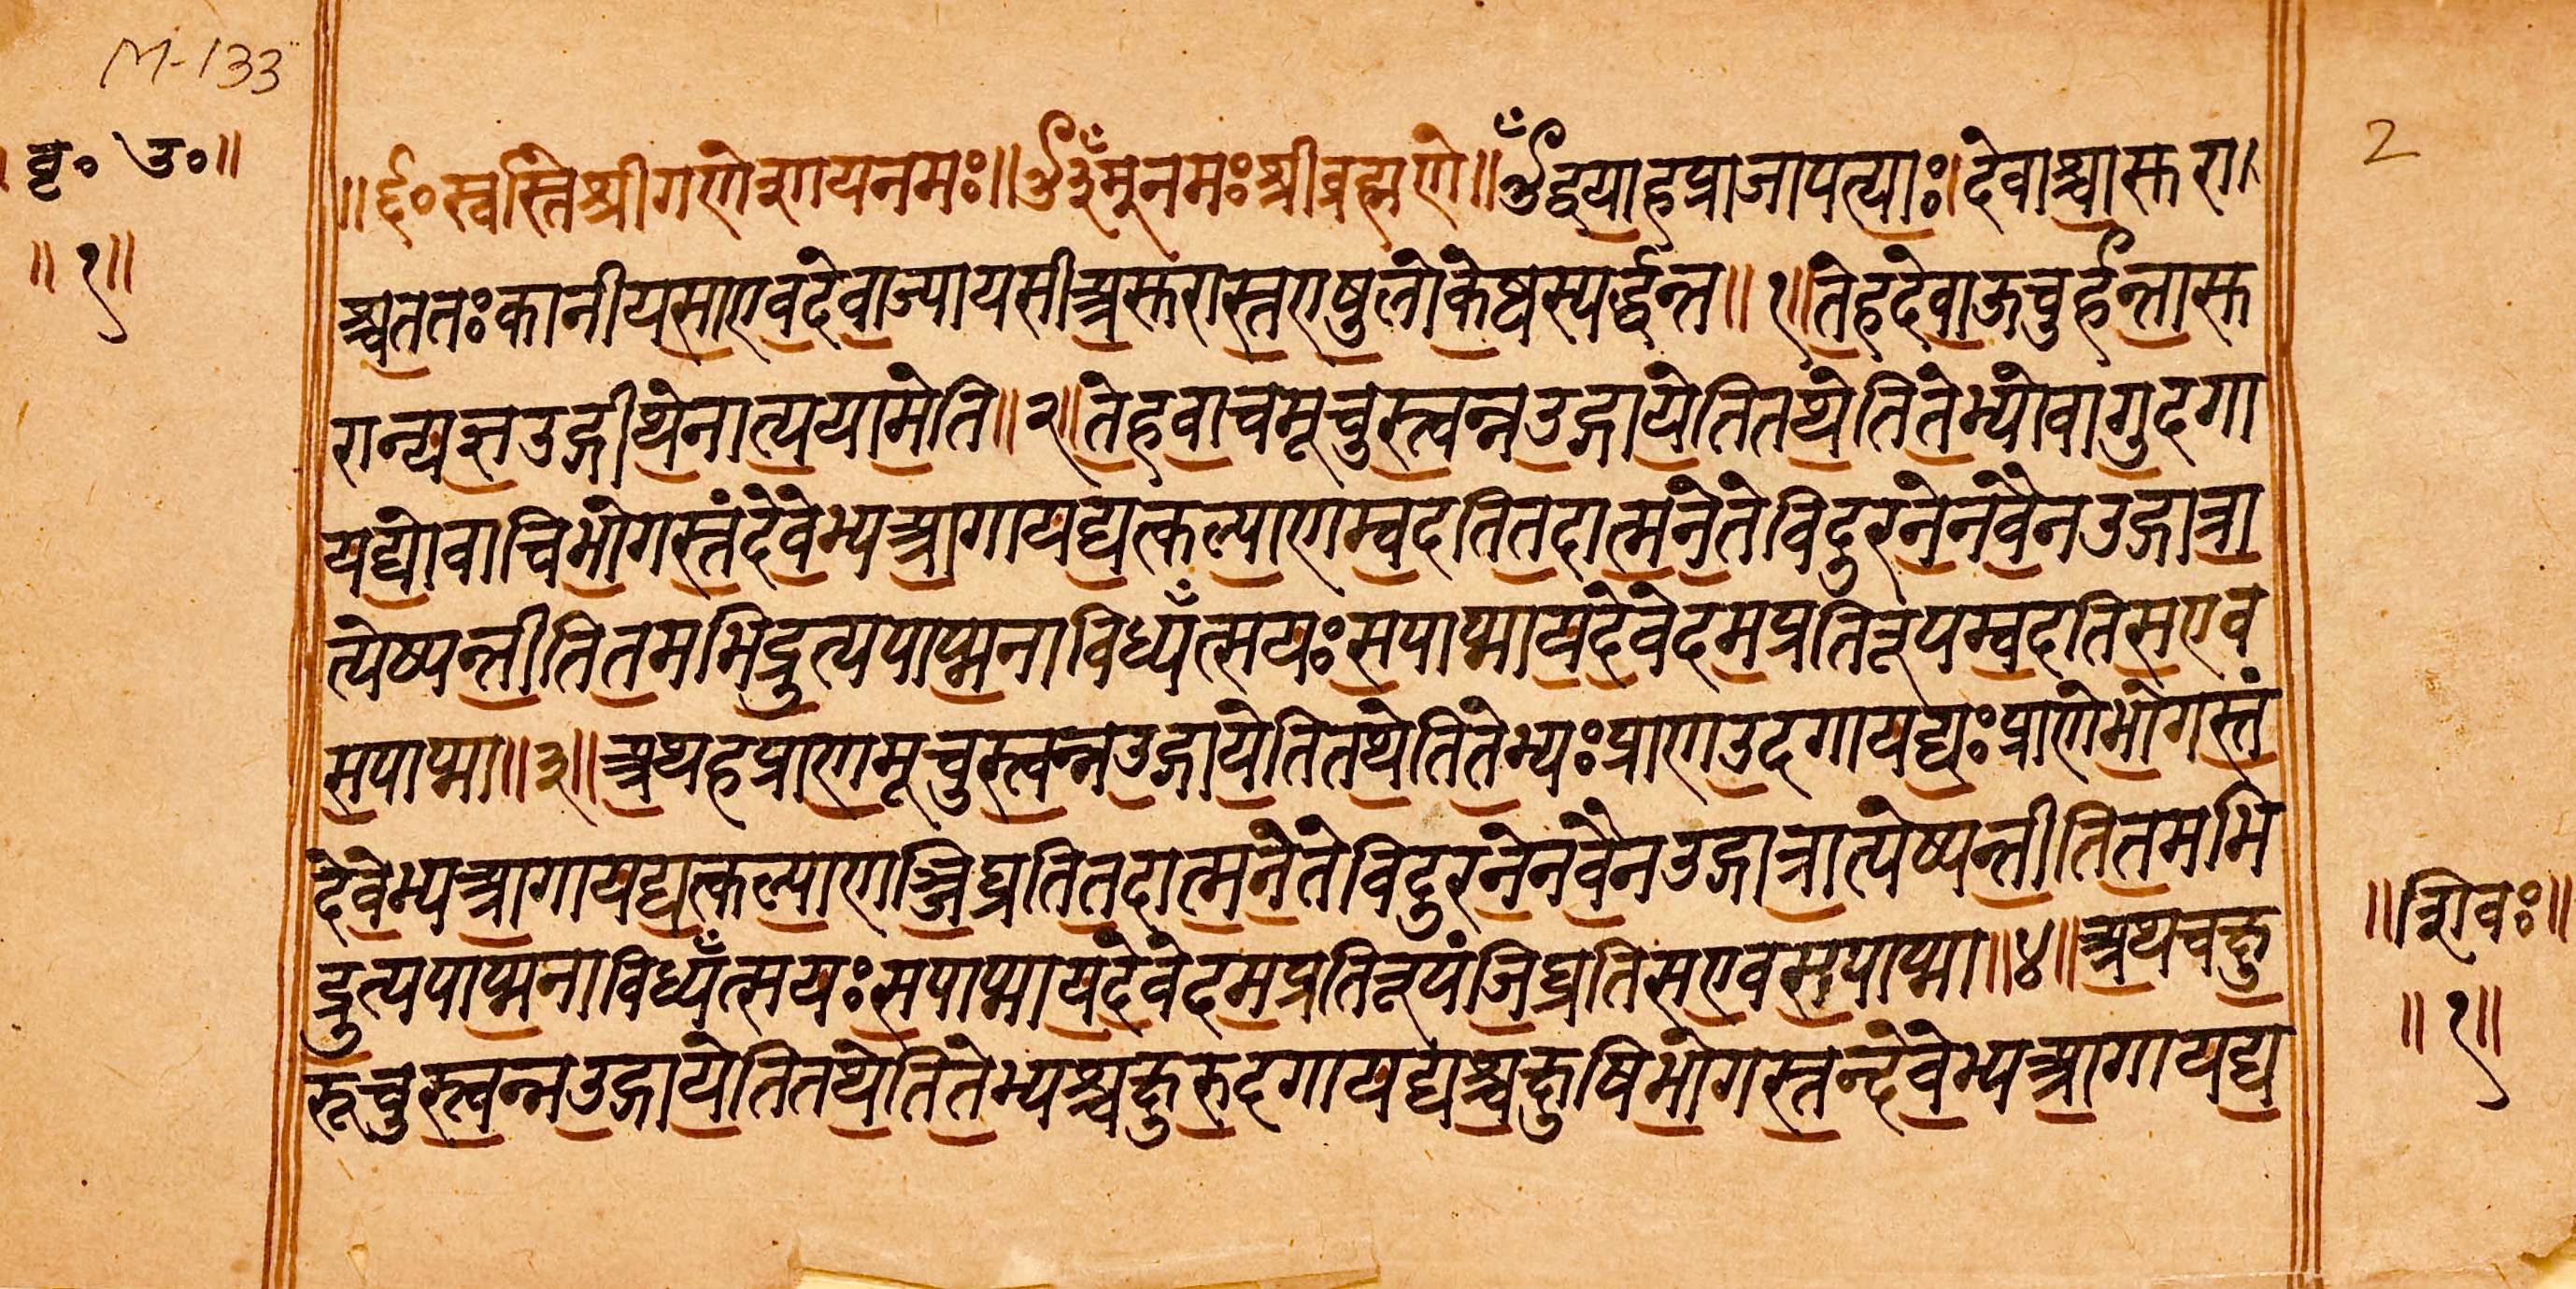 M-133
बृ॰ उ॰॥
॥१॥
2
॥र्द्द॰स्वस्तिश्रीगणेशायनमः॥ॐ३ँम्नमःश्रीब्रह्मणे॥ॐद्वयाहप्राजापत्याः।देवाश्चासुरा।
श्चततःकानीयसाएवदेवाज्यायसीअसुरास्तएषुलोकेष्वस्पर्द्धन्त॥१॥तेहदेवाऊचुर्हन्तासु
रान्यज्ञउद्गीथेनात्ययामेति॥२॥तेहवाचमूचुस्त्वन्नउद्गायेतितथेतितेभ्योवागुदगा
यद्योवाचिभोगस्तंदेवेभ्यआगायद्यत्कल्याणम्वदतितदात्मनेतेविदुरनेनवैनउद्गात्रा
त्येष्यन्तीतितमभिद्रुत्यपाप्मनाविध्यँत्सयःसपाप्मायदेवेदमप्रतिरूपम्वदतिसएव
सपाप्मा॥३॥अथहप्राणमूचुस्त्वन्नउद्गायेतितथेतितेभ्यःप्राणउदगायद्यःप्राणेभोगस्तं
देवेभ्यआगायद्यत्कल्याणञ्जिघ्रतितदात्मनेतेविदुरनेनवैनउद्गात्रात्येष्यन्तीतितमभि
द्रुत्यपाप्मनाविध्यँत्सयःसपाप्मायदेवेदमप्रतिरूपंजिघ्रतिसएवसपाप्मा॥४॥अथचक्षु
रूचुस्त्वन्नउद्गायेतितथेतितेभ्यश्चक्षुरुदगायद्यश्चक्षुषिभोगस्तन्देवेभ्यआगायद्य
॥शिवः॥
॥१॥